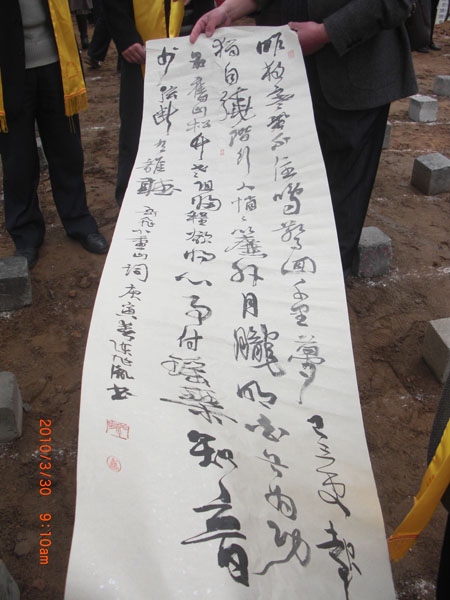 昨夜寒蛩不住鳴驚回千里夢已三更起
獨自繞階行人悄悄簾外月朧明白首為功
名舊山松竹老阻歸程欲將心事付瑤琴知音
少弦斷有誰聽 岳飛小重山詞 庚寅春陳書
2010/3/30 9:10am